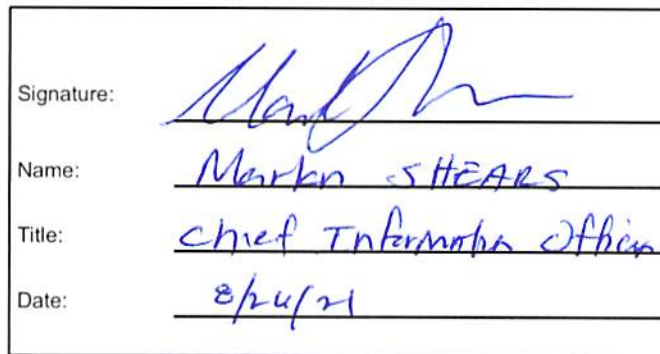 Signature:
Name: SHEARS
Title: Chief Information Officer
Date: